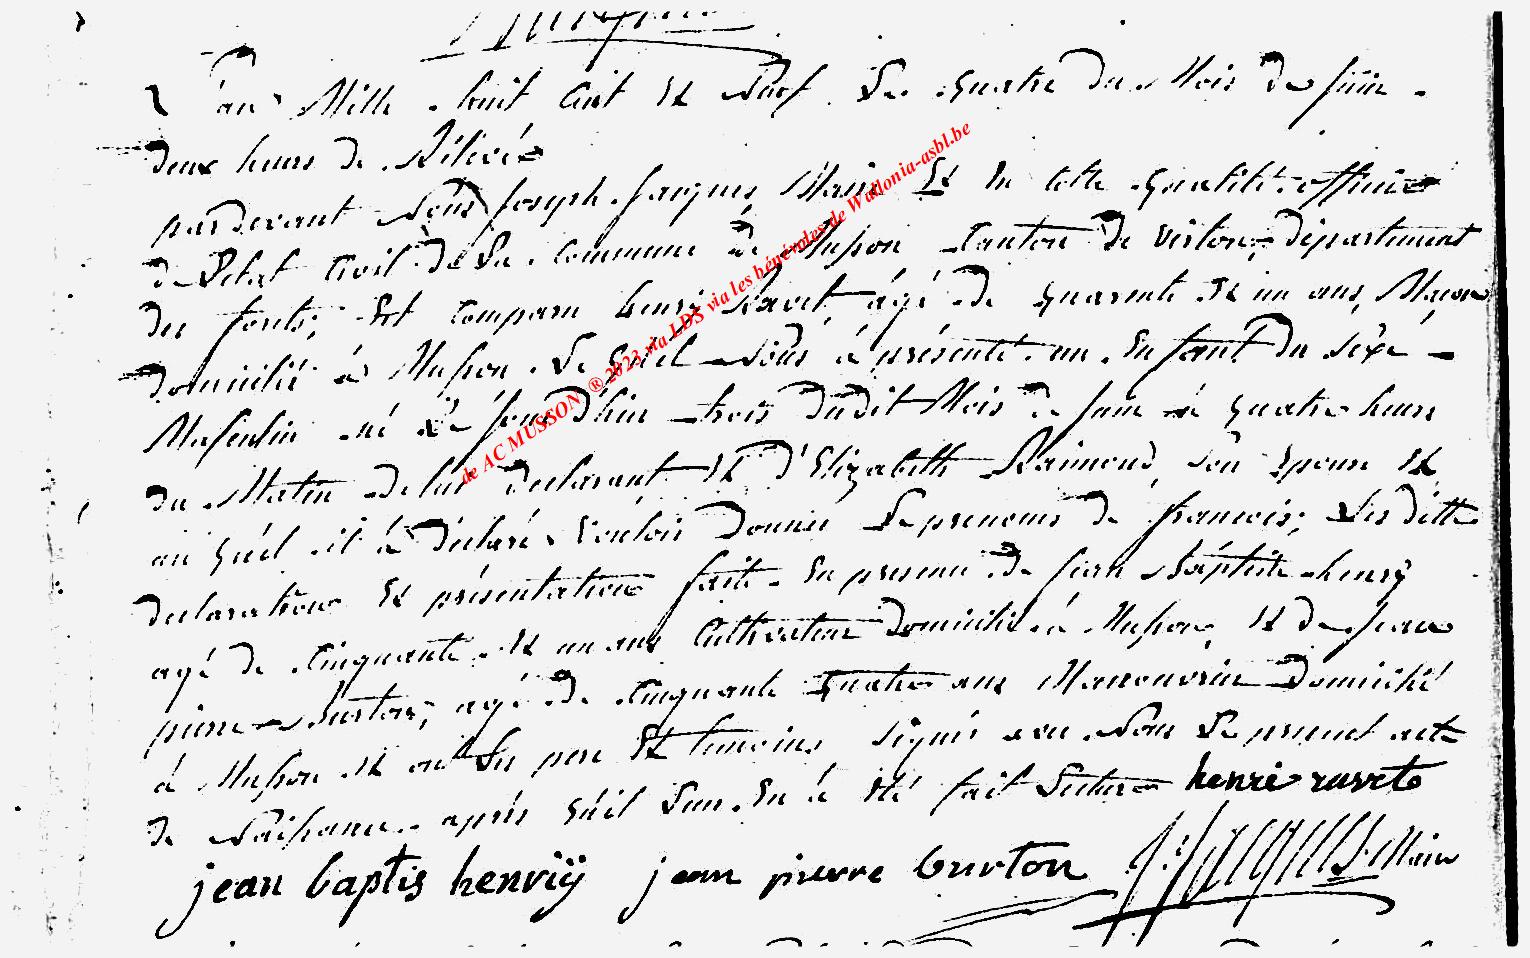 L'an Mille huit Cent Et Neuf Le quatre du Mois de juin
deux heures de Rélévé
pardevant Nous Joseph Jacques Maire Et En cette qualité officier
de L'etat Civil de La Commune de Musson Canton de Virton, département
des forêts; Est Comparu henri Ravet âgé de quarente Et un ans, Maçon
domicilié à Musson Le quel Nous à présenté un Enfant du Sexe
Masculin né Le jourd'hui trois dudit Mois de juin à quatre heures
du Matin de lui declarant Et d'Elizabeth Raimond, son Epouse Et
au quel il à déclaré vouloir donner Le prenoms de francois; Les dittes
declarations Et présentations faite En presence de jean Baptiste henrÿ
agé de Cinquante Et un ans Cultivateur domicilié à Musson, Et de jean
pierre Burton; agé de Cinquante quatre ans Manouvrier domicilié
à Musson Et ont Les pere Et temoins signés avec Nous Le present acte
de Naissance après qu'il Leur En à Eté fait Lecture henri ravet
jean baptis henriÿ jean pierre burton J: Jacques Maire
de AC MUSSON ® 2023 via LDS via les bénévoles de Wallonia-asbl.be